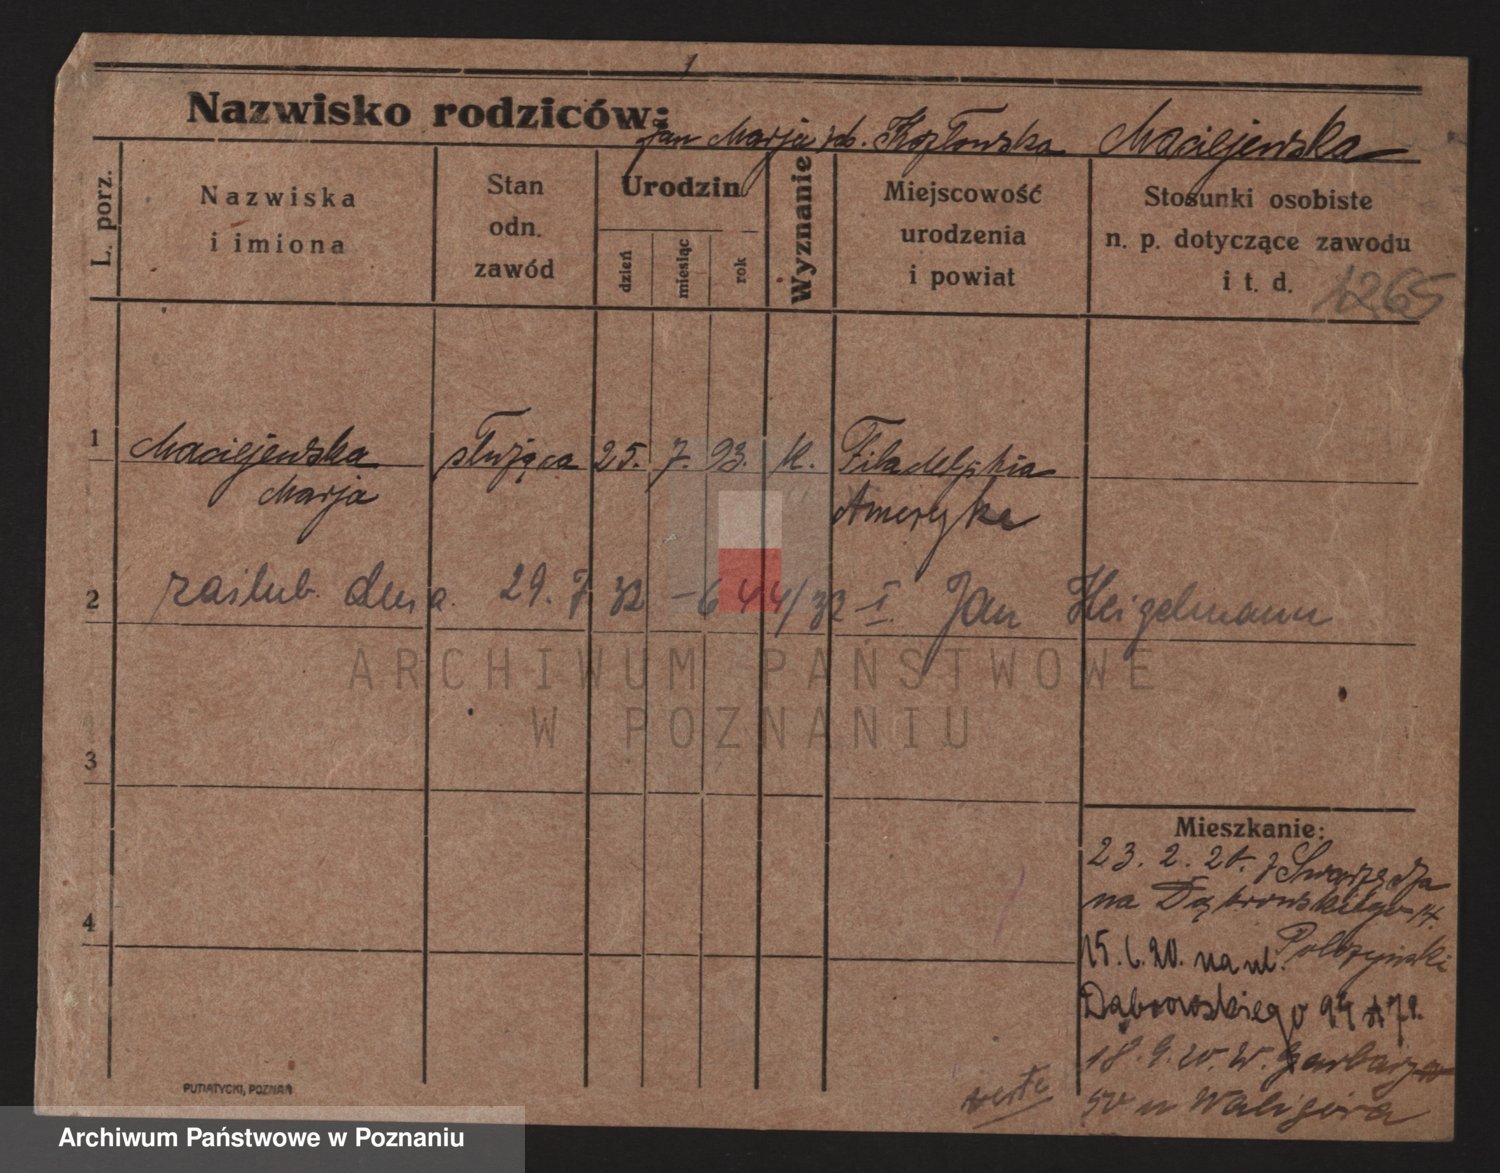 1
Nazwisko rodziców: Jan Marja rod. Kozłowska Maciejewska
L. porz.
Nazwiska
i imiona
Stan
odn.
zawód
Urodzin
dzień
miesiąc
rok
Wyznanie
Miejscowość
urodzenia
i powiat
Stosunki osobiste
n. p. dotyczące zawodu
i t. d.
1265
1 Maciejewska służąca 25. 7. 93. k. Filadelphia
Marja Ameryka
2 zaślub. dnia 29. 7 32 – 644/32 I. Jan Heigelmann
ARCHIWUM PAŃSTWOWE
W POZNANIU
3
4
Mieszkanie:
23. 2. 20. z Swarzędza
na Dąbrowskiego 14.
15. 6. 20. na ul.
Dąbrowskiego
18. 9. 20. W. Garbary
50 u Waligóra
verte
PUTIATYCKI, POZNAŃ
Archiwum Państwowe w Poznaniu